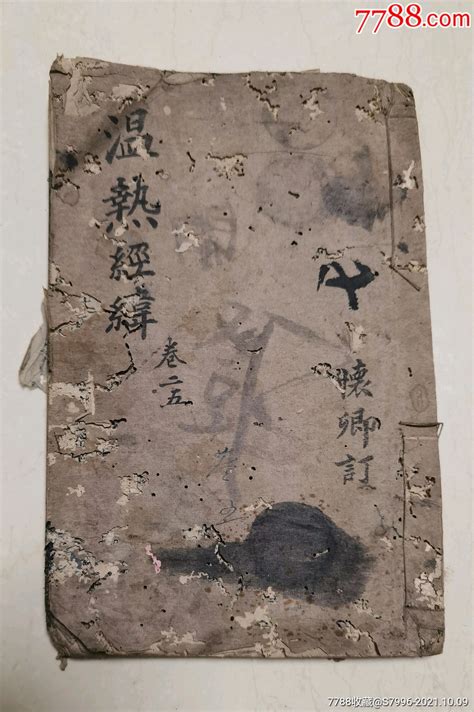 7788.com
温熱經緯
卷二五
懷卿訂
7788收藏@S7996-2021.10.09